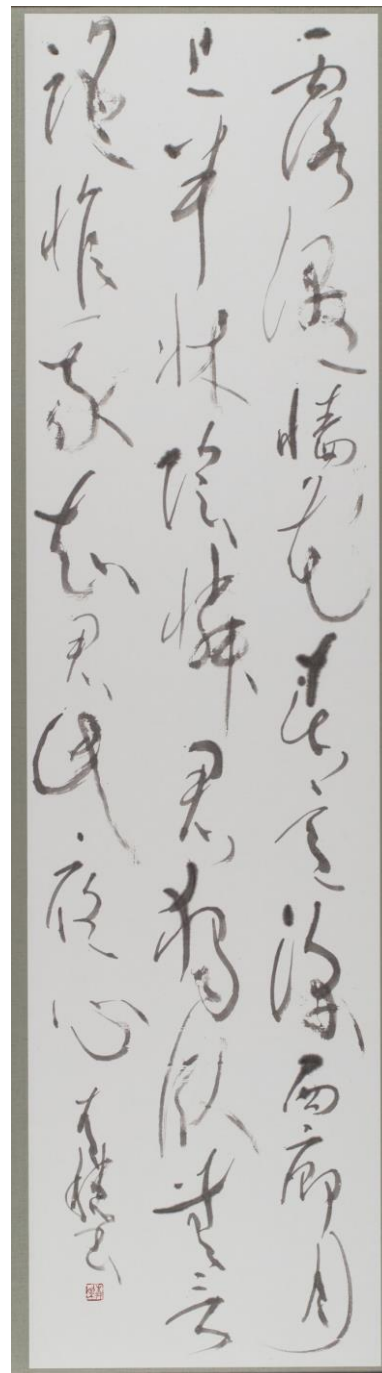 露濕墻花春意深西廊月
上半牀陰憐君獨臥無言
語惟我知君此夜心